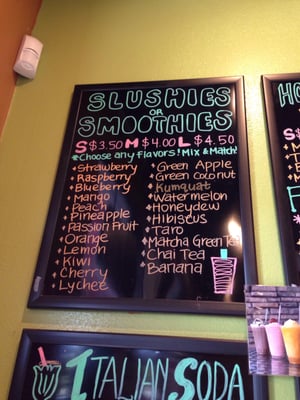 SLUSHIES
OR
SMOOTHIES
S $3.50 M $4.00 L $4.50
*Choose any flavors! Mix & Match!
Strawberry
Raspberry
Blueberry
Mango
Peach
Pineapple
Passion Fruit
Orange
Lemon
Kiwi
Cherry
Lychee
Green Apple
Green Coconut
Kumquat
Watermelon
Honeydew
Hibiscus
Taro
Matcha Green Tea
Chai Tea
Banana
ITALIAN SODA